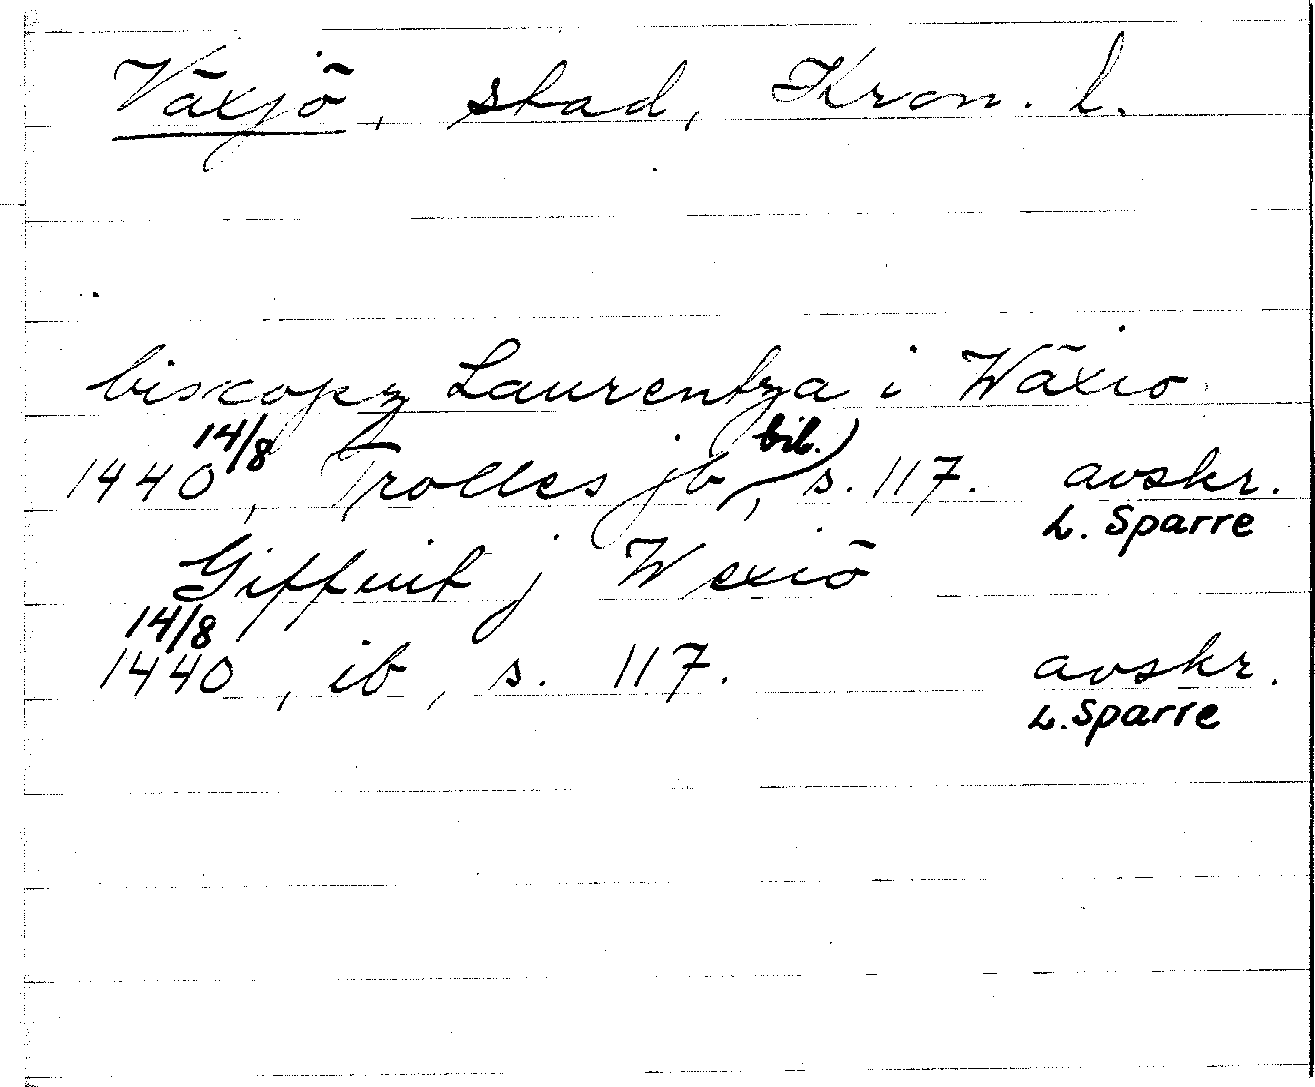 Växjö, stad, Kron. l.
biscopz Laurentza i Wäxio
1440 14/8, Trolles jb, bil. s. 117. avskr.
L. Sparre
Giffuit j Wexiö
14/8
1440, ib, s. 117. avskr.
L. Sparre